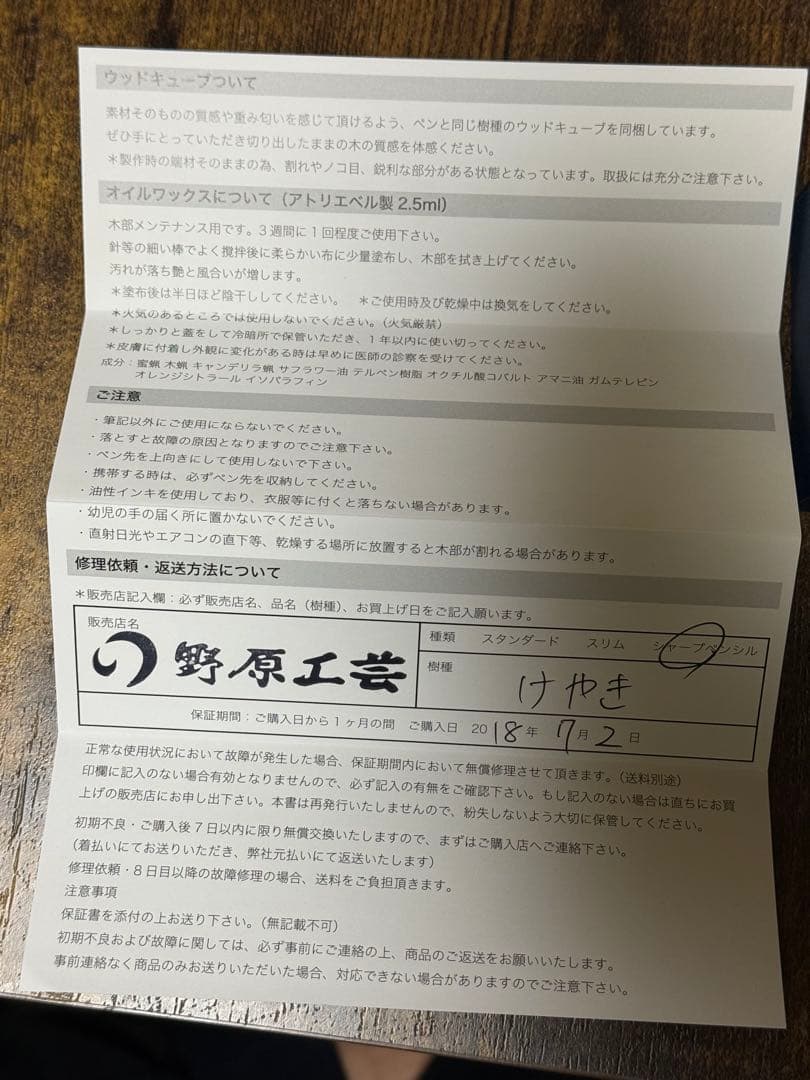 ウッドキューブついて
素材そのものの質感や重み匂いを感じて頂けるよう、ペンと同じ樹種のウッドキューブを同梱しています。
ぜひ手にとっていただき切り出したままの木の質感を体感ください。
＊製作時の端材そのままの為、割れやノコ目、鋭利な部分がある状態となっています。取扱には充分ご注意下さい。
オイルワックスについて（アトリエベル製 2.5ml）
木部メンテナンス用です。３週間に１回程度ご使用下さい。
針等の細い棒でよく攪拌後に柔らかい布に少量塗布し、木部を拭き上げてください。
汚れが落ち艶と風合いが増します。
＊塗布後は半日ほど陰干ししてください。　＊ご使用時及び乾燥中は換気をしてください。
＊火気のあるところでは使用しないでください。（火気厳禁）
＊しっかりと蓋をして冷暗所で保管いただき、１年以内に使い切ってください。
＊皮膚に付着し外観に変化がある時は早めに医師の診察を受けてください。
成分：蜜蝋 木蝋 キャンデリラ蝋 サフラワー油 テルペン樹脂 オクチル酸コバルト アマニ油 ガムテレピン
オレンジシトラール イソパラフィン
ご注意
・筆記以外にご使用にならないでください。
・落とすと故障の原因となりますのでご注意下さい。
・ペン先を上向きにして使用しないで下さい。
・携帯する時は、必ずペン先を収納してください。
・油性インキを使用しており、衣服等に付くと落ちない場合があります。
・幼児の手の届く所に置かないでください。
・直射日光やエアコンの直下等、乾燥する場所に放置すると木部が割れる場合があります。
修理依頼・返送方法について
＊販売店記入欄：必ず販売店名、品名（樹種）、お買上げ日をご記入願います。
販売店名
野原工芸
種類　スタンダード　スリム　シャープペンシル
樹種
けやき
保証期間：ご購入日から１ヶ月の間　ご購入日　2018年 7月 2日
正常な使用状況において故障が発生した場合、保証期間内において無償修理させて頂きます。（送料別途）
印欄に記入のない場合有効となりませんので、必ず記入の有無をご確認下さい。もし記入のない場合は直ちにお買
上げの販売店にお申し出下さい。本書は再発行いたしませんので、紛失しないよう大切に保管してください。
初期不良・ご購入後７日以内に限り無償交換いたしますので、まずはご購入店へご連絡下さい。
（着払いにてお送りいただき、弊社元払いにて返送いたします）
修理依頼・８日目以降の故障修理の場合、送料をご負担頂きます。
注意事項
保証書を添付の上お送り下さい。（無記載不可）
初期不良および故障に関しては、必ず事前にご連絡の上、商品のご返送をお願いいたします。
事前連絡なく商品のみお送りいただいた場合、対応できない場合がありますのでご注意下さい。